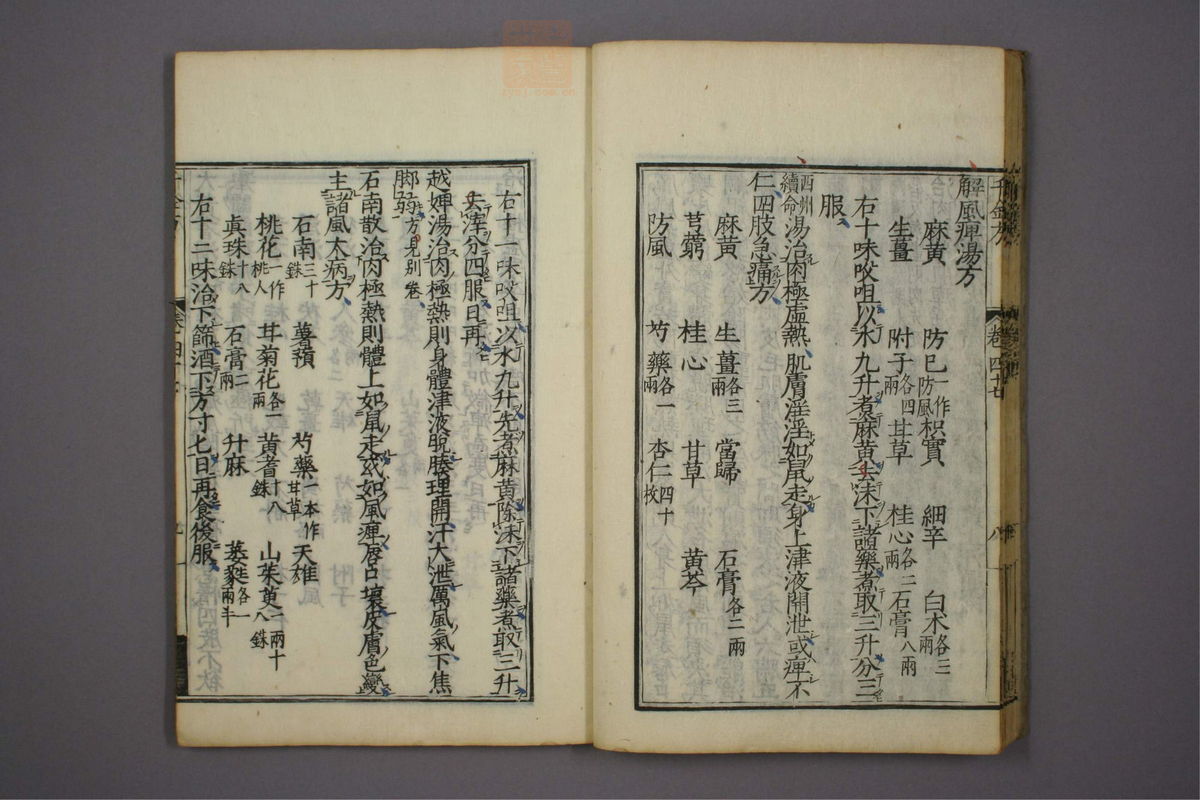 解風痺湯方
麻黃　防巳一作防風　枳實　細辛　白朮各三兩
生薑　附子各四兩　甘草　桂心各二兩　石膏八兩
右十味㕮咀以水九升煮麻黃去沫下諸藥煮取三升分三
服
西州續命湯治肉極虛熱肌膚淫淫如鼠走身上津液開泄或痺不
仁四肢急痛方
麻黃　生薑各三兩　當歸　石膏各二兩
芎藭　桂心　甘草　黃芩
防風　芍藥各一兩　杏仁四十枚
右十一味㕮咀以水九升先煮麻黃除沫下諸藥煮取三升
去滓分四服日再
越婢湯治肉極熱則身體津液脫腠理開汗大泄厲風氣下焦
脚弱方見別卷
石南散治肉極熱則體上如鼠走或如風痺唇口壞皮膚色變
主諸風大病方
石南三十銖　薯蕷　芍藥一本作甘草　天雄
桃花一作桃人　甘菊花各一兩　黃耆十八銖　山茱萸一兩十八銖
真珠十八銖　石膏二兩　升麻　葳蕤各一兩半
右十二味治下篩酒下方寸匕日再食後服
千金方
卷四十七
八